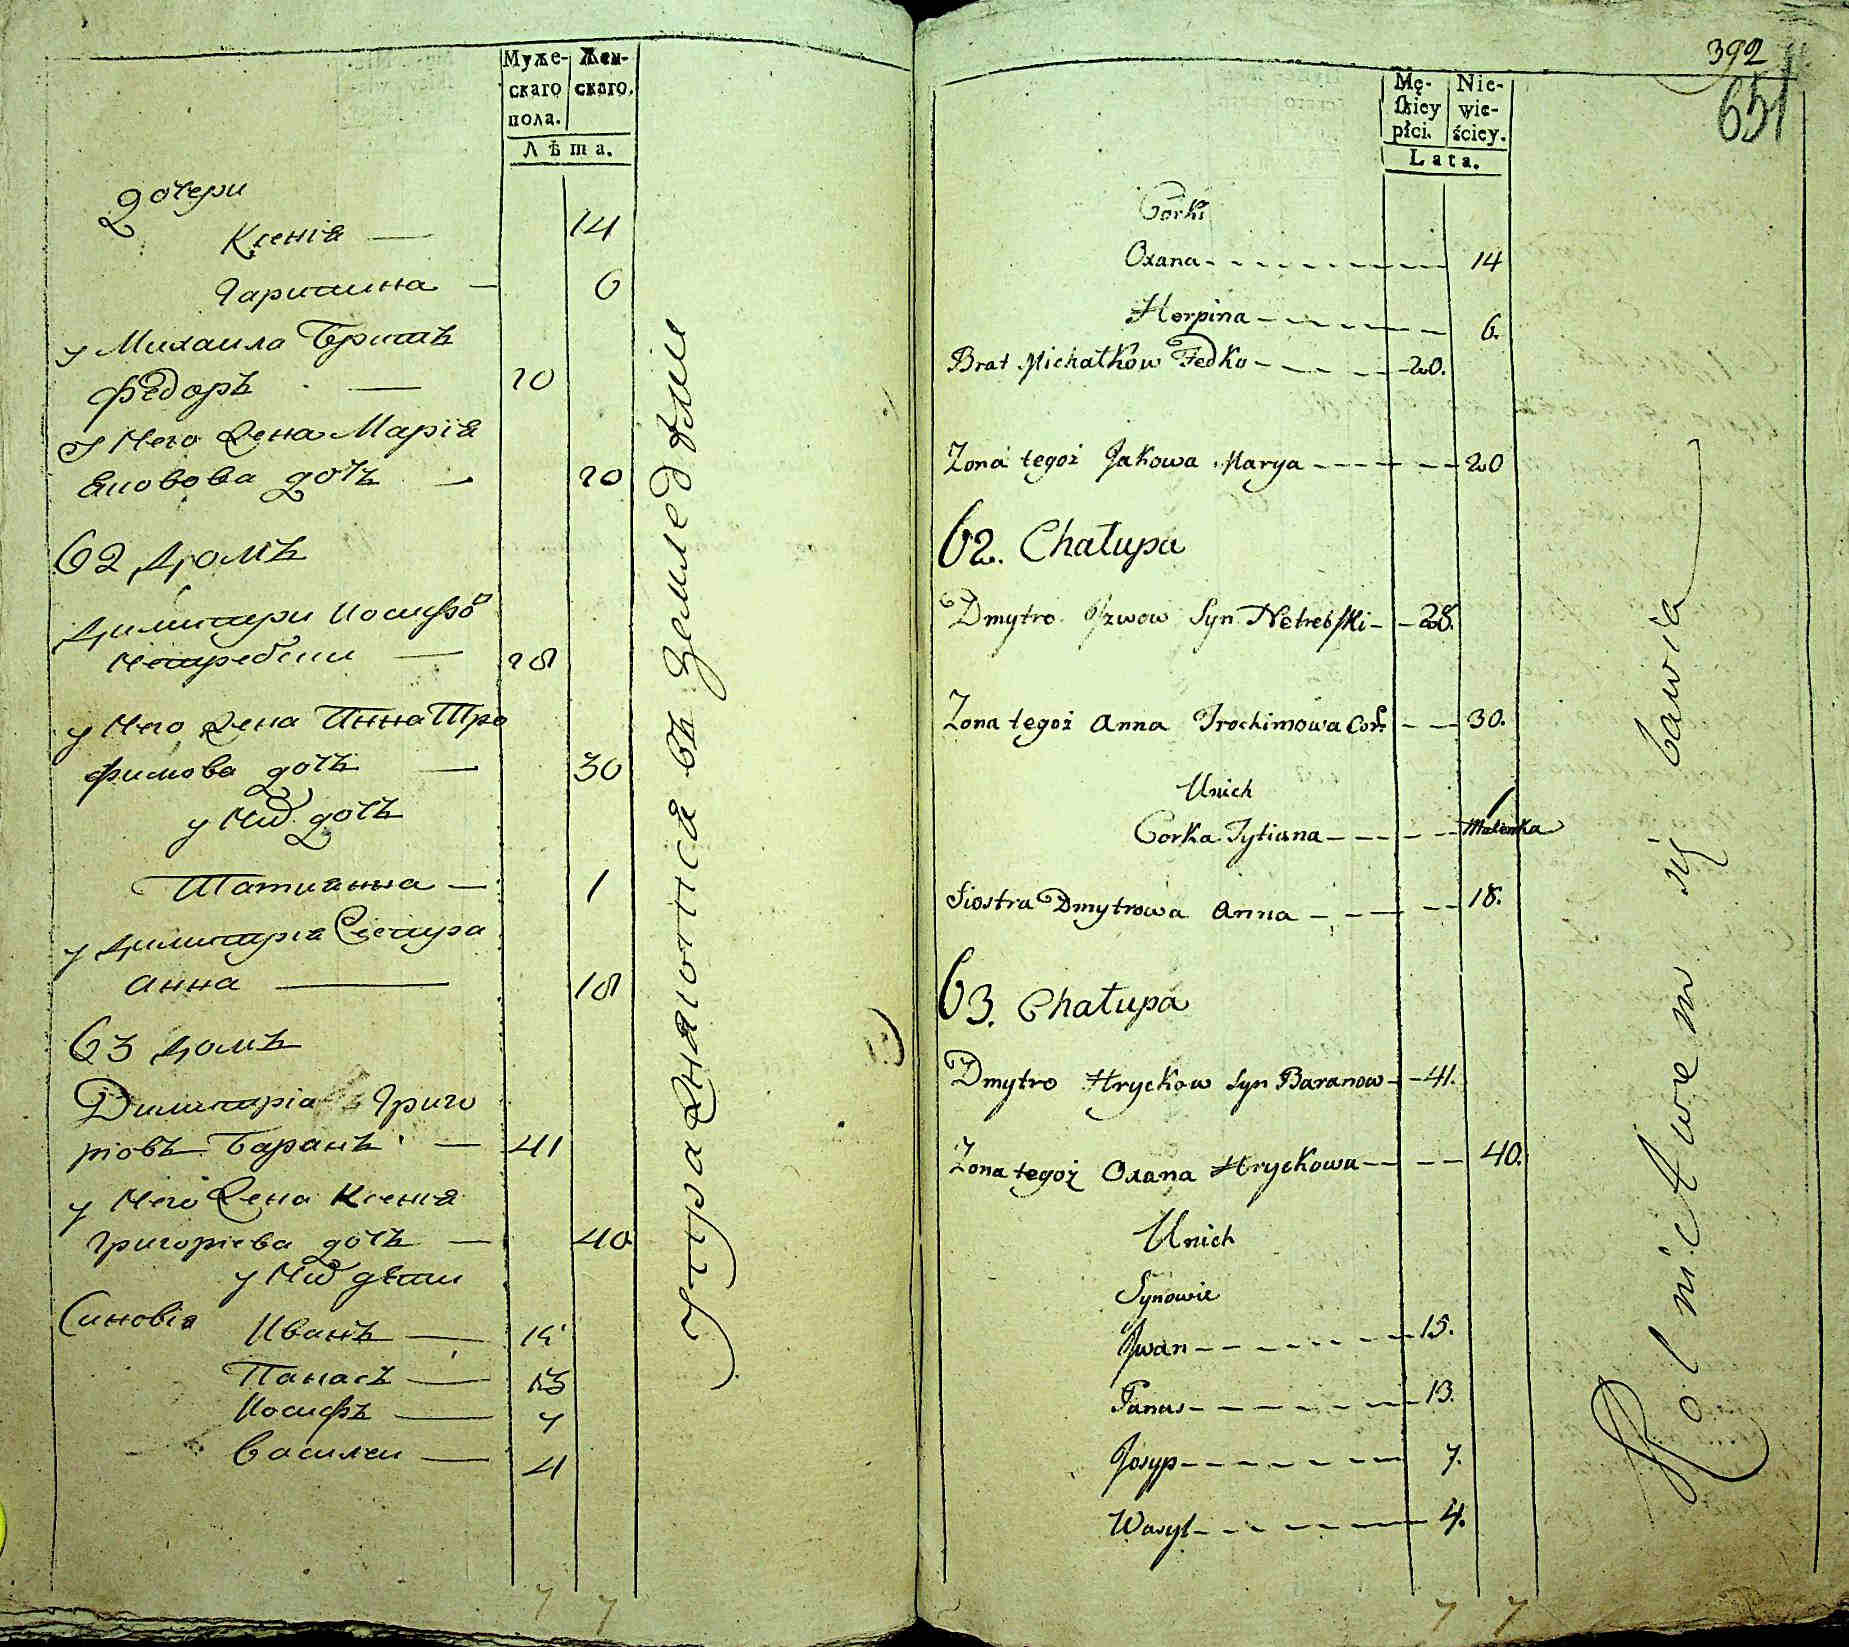 Муже-
скаго
пола.
Жен-
скаго.
Лѣта.
Дочери
Ксенія — 14
Гарпина — 6
у Михаила братъ
Федоръ — 20
у него жена Марія
Яковова дочъ — 20
62 домъ
Димитри Иосифо
Нетребски — 28
у него жена Анна Тро
фимова дочъ — 30
у них дочъ
Татианна — 1
у Димитрія Сестра
Анна — 18
63 домъ
Димитрій Григо
ріовъ Баранъ — 41
у него жена Ксенія
Григоріева дочъ — 40
у них дѣти
Синовія Иванъ — 15
Панасъ — 13
Иосифъ — 7
Василеи — 4
Упражняются въ земледѣлии
7 7
392
651
Mę-
skiey
płci.
Nie-
wie-
ściey.
Lata.
Corki
Oxana - - - - - 14
Horpina - - - - - 6.
Brat Michałkow Fedko - - - - - 20.
Zona tegoż Jakowa Marya - - - - - 20
62. Chałupa
Dmytro Jzwow Syn Netrebski - - 28.
Zona tegoż Anna Trochimowa Cor: - - - 30.
Unich
Corka Tytiana - - - - - Malenka
Siostra Dmytrowa Anna - - - - - 18.
63. Chałupa
Dmytro Hryckow Syn Baranow - - 41.
Zona tegoż Oxana Hryckowa - - - - 40.
Unich
Synowie
Jwan - - - - - 15.
Panas - - - - - 13.
Josyp - - - - - 7.
Wasyl - - - - - 4.
Rolnictwem się bawią
7 7